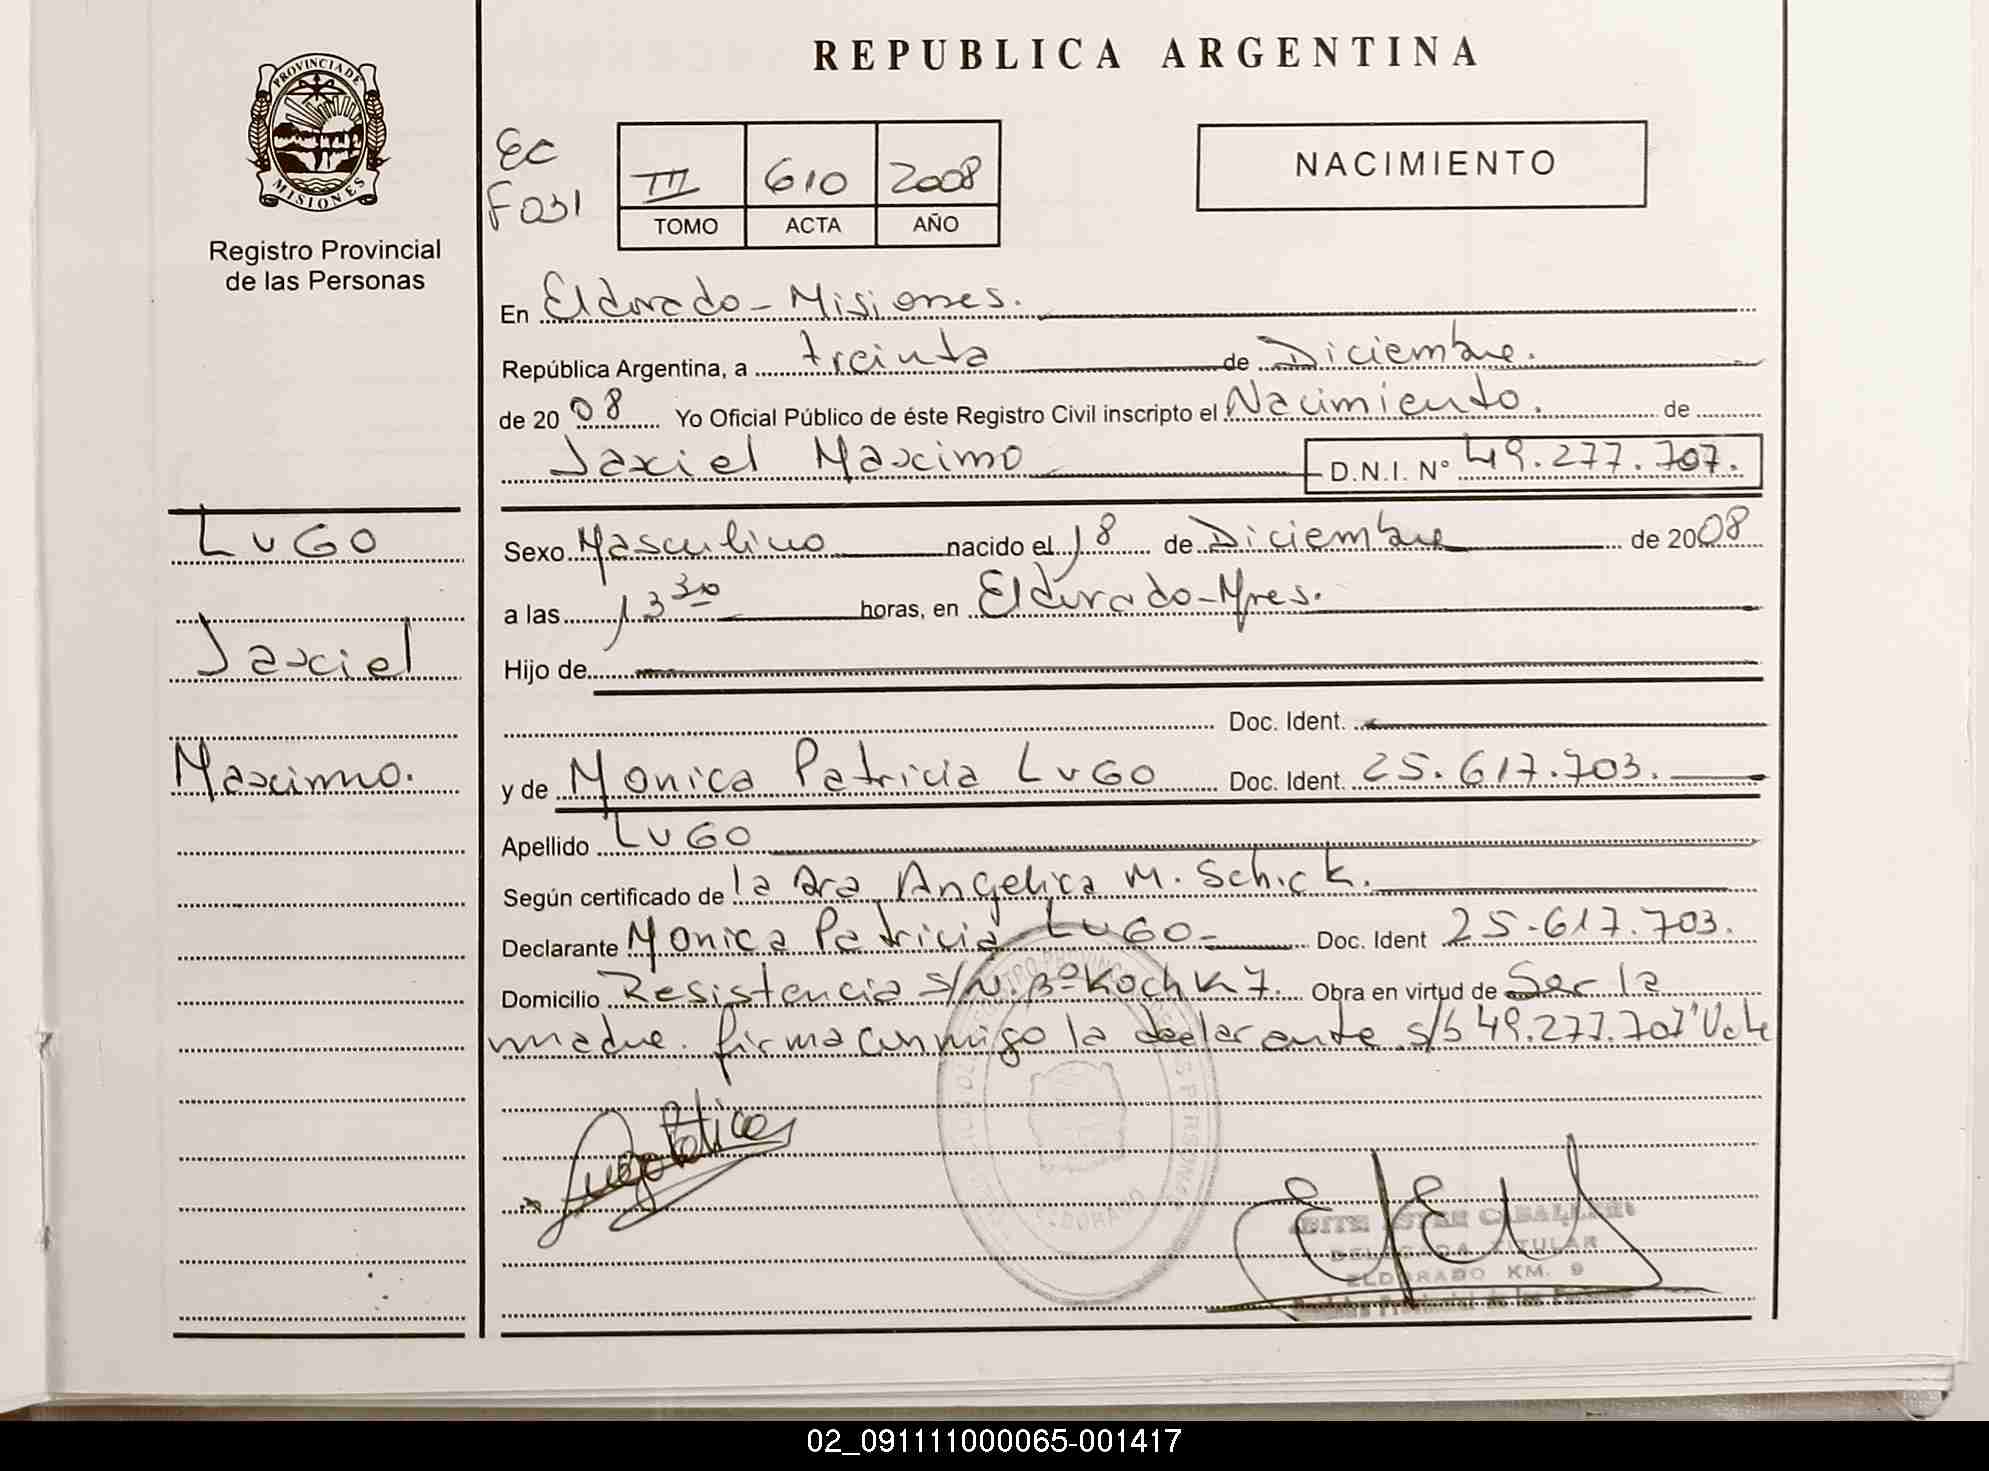 REPUBLICA ARGENTINA
PROVINCIA DE
MISIONES
Registro Provincial
de las Personas
EC
F 031
III 610 2008
TOMO ACTA AÑO
NACIMIENTO
En Eldorado - Misiones.
República Argentina, a treinta de Diciembre.
de 2008 Yo Oficial Público de éste Registro Civil inscripto el Nacimiento. de
Jaxiel Maximo D.N.I. N° 49.277.707.
LUGO
Jaxiel
Maximo.
Sexo Masculino nacido el 18 de Diciembre de 2008
a las 13 30 horas, en Eldorado - Mnes.
Hijo de
Doc. Ident.
y de Monica Patricia LUGO Doc. Ident. 25.617.703.
Apellido LUGO
Según certificado de la Dra Angelica M. Schick.
Declarante Monica Patricia LUGO - Doc. Ident 25.617.703.
Domicilio Resistencia s/N. B° Koch K 7. Obra en virtud de Ser la
madre. firma conmigo la declarante s/b 49.277.707 "Vale
Lugo Patricia
DELEGADA TITULAR
ELDORADO KM. 9
Registro Provincial de las Personas
02_091111000065-001417